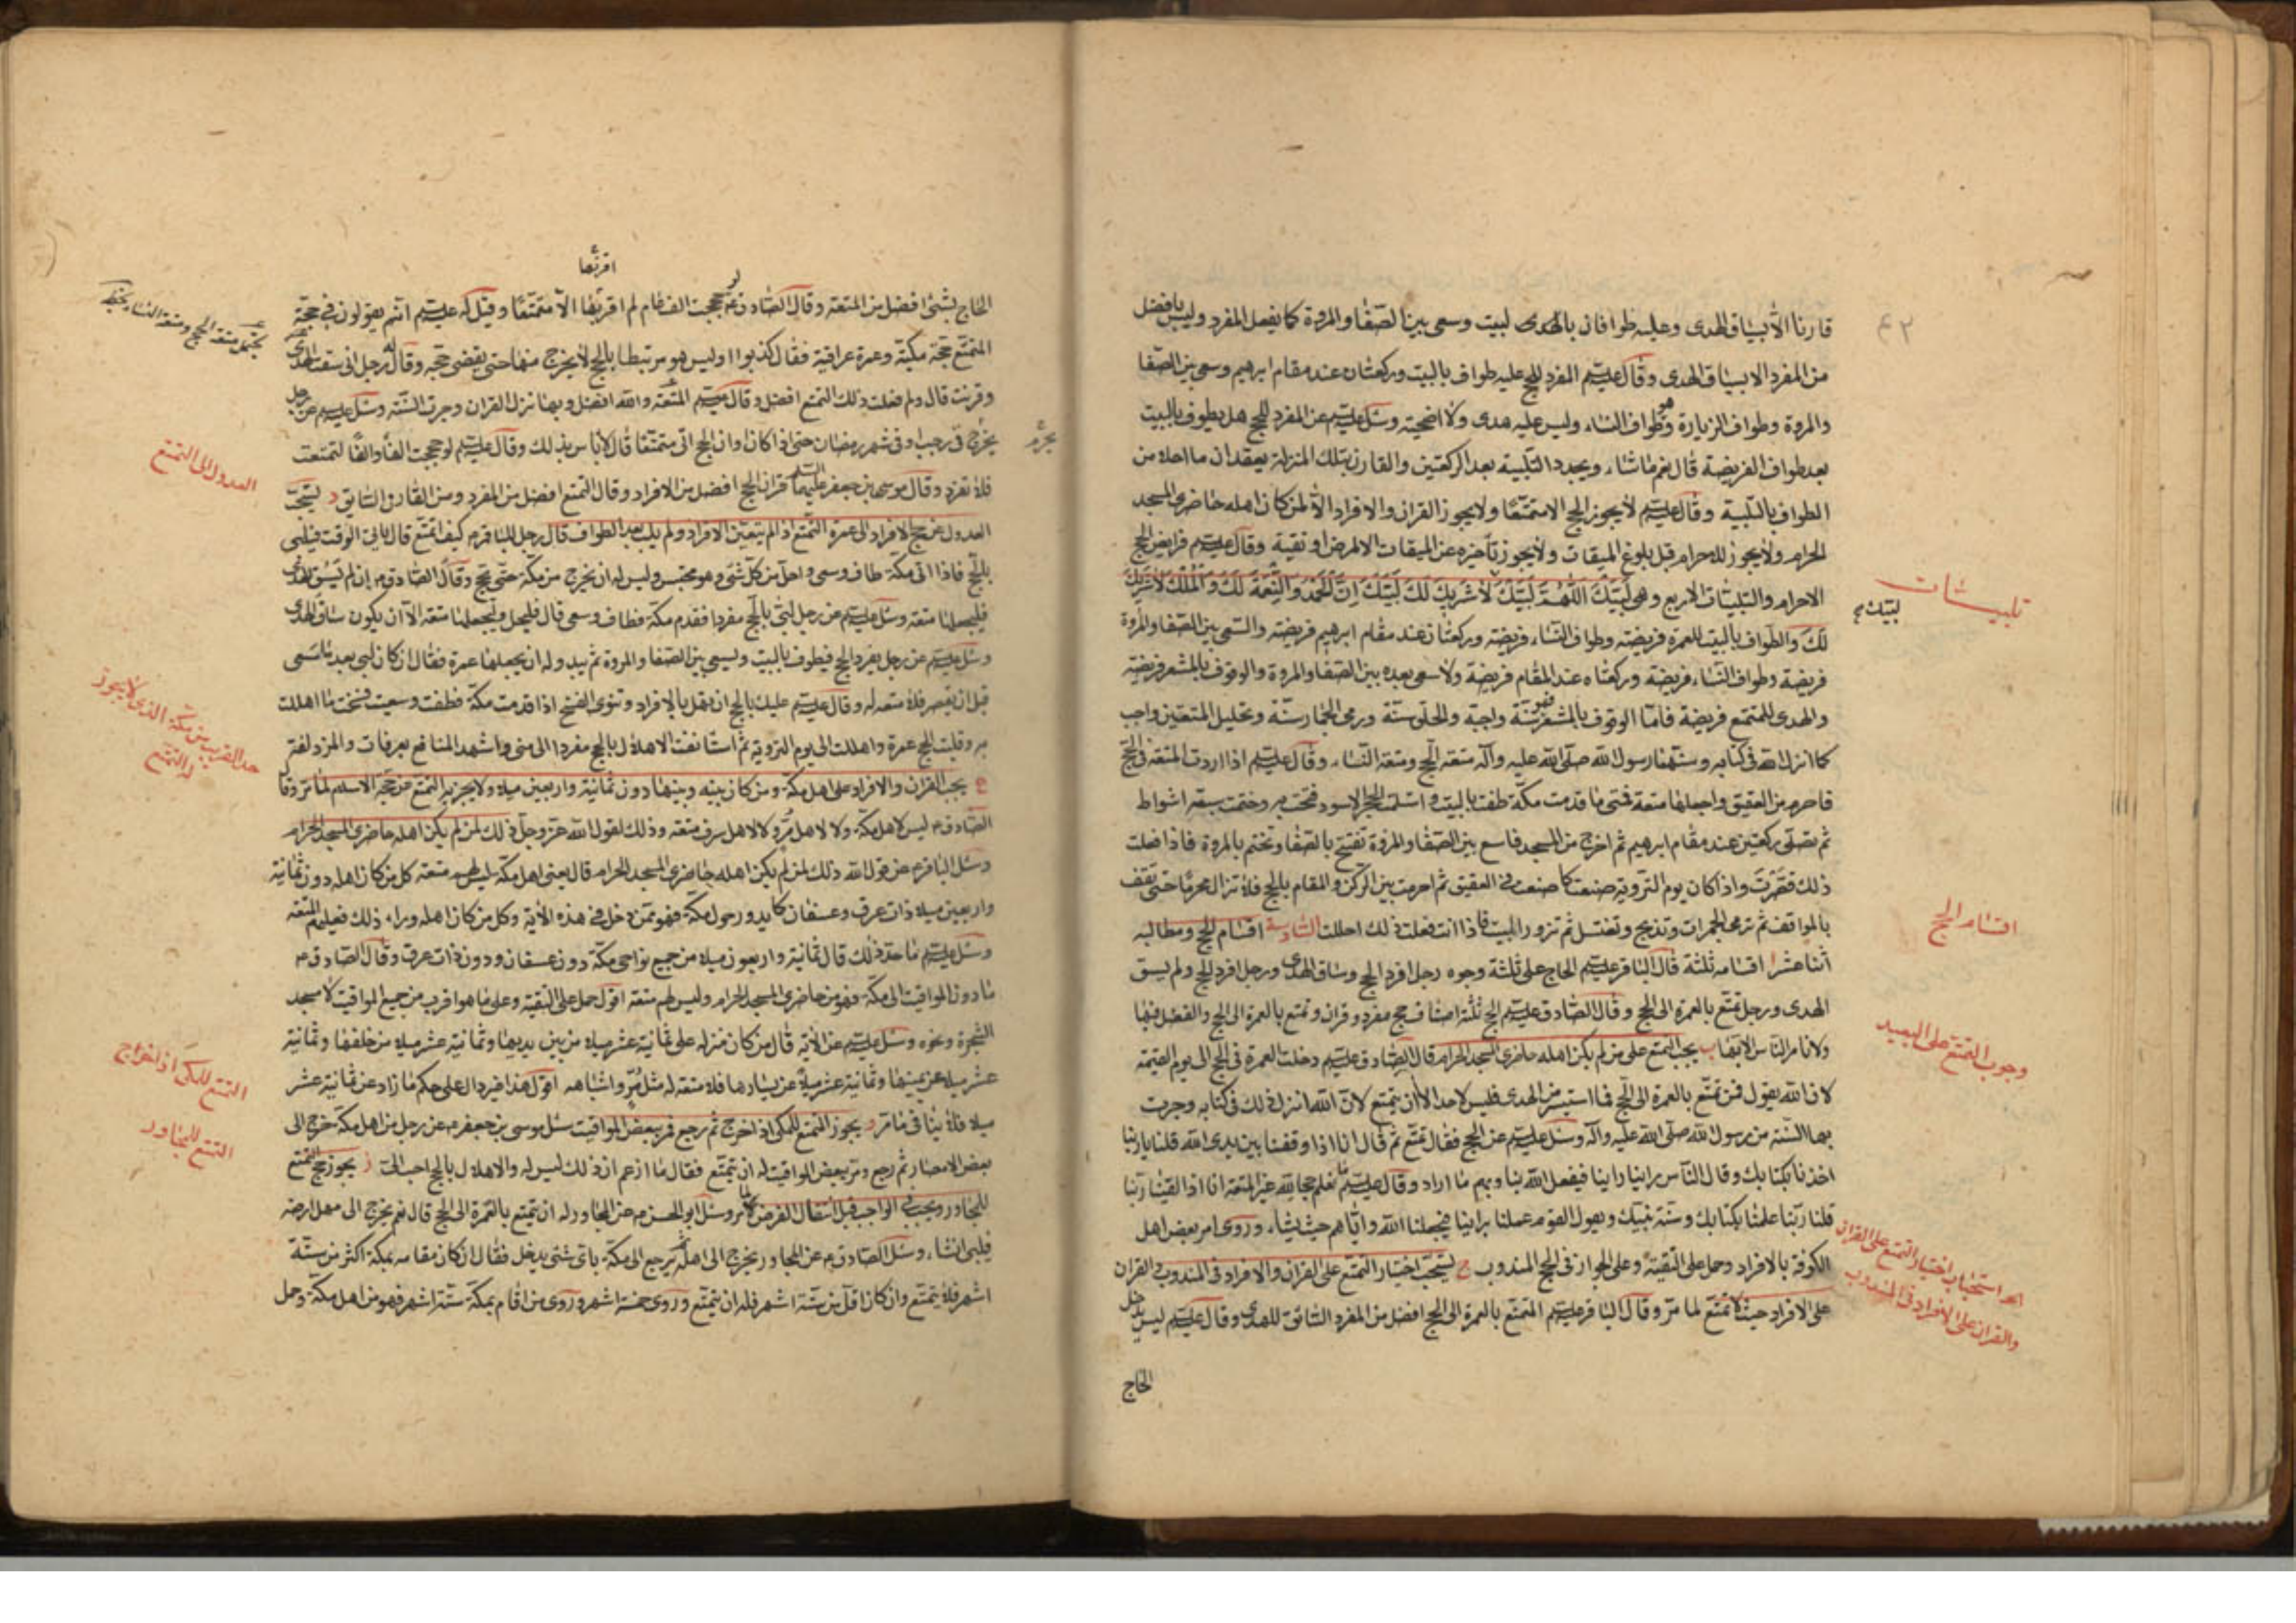 قارنا الا بسياق الهدى وعليه طوافان بالبيت وسعى بين الصفا والمروة كما يفعل المفرد وليس بافضل
من المفرد الا بسياق الهدى وقال عليه السلم المفرد للحج عليه طواف بالبيت وركعتان عند مقام ابرهيم وسعى بين الصفا
والمروة وطواف الزيارة وهو طواف النساء وليس عليه هدى ولا اضحية وسئل عليه السلم عن المفرد للحج هل يطوف بالبيت
بعد طواف الفريضة قال نعم ما شاء ويجدد التلبية بعد الركعتين والقارن بتلك المنزلة يعقدان ما احلا من
الطواف بالتلبية وقال عليه السلم لا يجوز الحج الا متمتعا ولا يجوز القران والافراد الا لمن كان اهله حاضرى المسجد
الحرام ولا يجوز للاحرام قبل بلوغ الميقات ولا يجوز تأخيره عن الميقات الا لمرض او تقية وقال عليه السلم فرايض الحج
الاحرام والتلبيات الاربع وهى لبيك اللهم لبيك لا شريك لك لبيك ان الحمد والنعمة لك والملك لا شريك
لك والطواف بالبيت للعمرة فريضة وركعتان عند مقام ابرهيم فريضة والسعى بين الصفا والمروة
فريضة وطواف النساء فريضة وركعتاه عند المقام فريضة ولا سعى بعده بين الصفا والمروة والوقوف بالمشعر فريضة
والهدى للمتمتع فريضة فاما الوقوف بالمشعر فهو سنة واجبة والحلق سنة ورمى الجمار سنة وتحليل المتعتين واجب
كما انزل الله فى كتابه وسنهما رسول الله صلى الله عليه وآله متعة الحج ومتعة النساء وقال عليه السلم اذا اردت المتعة فى الحج
فاحرم من العقيق واجعلها متعة فمتى ما قدمت مكة طفت بالبيت واستلمت الحجر الاسود فتحت به وختمت سبعة اشواط
ثم تصلى ركعتين عند مقام ابرهيم ثم اخرج من المسجد فاسع بين الصفا والمروة تفتتح بالصفا وتختم بالمروة فاذا فعلت
ذلك قصرت واذا كان يوم التروية صنعت كما صنعت فى العقيق ثم احرمت بين الركن والمقام بالحج فلا تزال محرما حتى تقف
بالمواقف ثم ترمى الجمرات وتذبح وتغتسل ثم تزور البيت فاذا انت فعلت ذلك احللت السادسة اقسام الحج ومطالبه
اثنا عشر ا اقسامه ثلثة قال الباقر عليه السلم الحاج على ثلثة وجوه رجل افرد الحج وساق الهدى ورجل افرد الحج ولم يسق
الهدى ورجل تمتع بالعمرة الى الحج وقال الصادق عليه السلم الحج ثلثة اصناف حج مفرد وقران وتمتع بالعمرة الى الحج والفضل فيها
ولا نامر الناس الا بها ب يجب التمتع على من لم يكن اهله حاضرى المسجد الحرام قال الصادق عليه السلم دخلت العمرة فى الحج الى يوم القيمة
لان الله يقول فمن تمتع بالعمرة الى الحج فما استيسر من الهدى فليس لاحد الا ان يتمتع لان الله انزل ذلك فى كتابه وجرت
بها السنة من رسول الله صلى الله عليه وآله وسئل عليه السلم عن الحج فقال تمتع ثم قال انا اذا وقفنا بين يدى الله قلنا يا ربنا
اخذنا بكتابك وقال الناس راينا راينا فيفعل الله بنا وبهم ما اراد وقال عليه السلم ما نعلم حجا لله غير المتعة انا اذا لقينا ربنا
قلنا ربنا عملنا بكتابك وسنة نبيك ويقول القوم عملنا براينا فيجعلنا الله واياهم حيث يشاء وروى امر بعض اهل
الكوفة بالافراد وحمل على التقية وعلى الجواز فى الحج المندوب ج يستحب اختيار التمتع على القران والافراد فى المندوب والقران
على الافراد حيث لا تمتع لما مر وقال الباقر عليه السلم المتمتع بالعمرة الى الحج افضل من المفرد السائق للهدى وقال عليه السلم ليس يدخل
الحاج
٤٢
تلبيات
لبيك
اقسام الحج
وجوب التمتع على البعيد
استحباب اختيار التمتع على القران
والقران على الافراد فى المندوب
اقربها
الحاج بشئ افضل من المتعة وقال الصادق ع لو حججت الف عام لم اقربها الا متمتعا وقيل له عليه السلم انتم تقولون فى حجة
المتمتع حجة مكية وعمرة عراقية فقال كذبوا اوليس هو مرتبطا بالحج لا يخرج منها حتى يقضى حجه وقال له رجل انى سقت الهدى
وقرنت قال ولم فعلت ذلك التمتع افضل وقال عليه السلم المتعة والله افضل وبها نزل القران وجرت السنة وسئل عليه السلم عن رجل
يحرم فى رجب او فى شهر رمضان حتى اذا كان اوان الحج اتى متمتعا قال لا باس بذلك وقال عليه السلم لو حججت الفا والفا لتمتعت
فلا تفرد وقال موسى بن جعفر عليهما السلم قران الحج افضل من الافراد وقال التمتع افضل من المفرد ومن القارن السايق د يستحب
العدول عن حج الافراد الى عمرة التمتع اذا لم يتعين الافراد ولم يلب بعد الطواف قال رجل للباقر ع كيف اتمتع قال ياتى الوقت فيلبى
بالحج فاذا اتى مكة طاف وسعى واحل من كل شئ وهو محتبس وليس له ان يخرج من مكة حتى يحج وقال الصادق ع ان لم يسق الهدى
فليجعلها متعة وسئل عليه السلم عن رجل لبى بالحج مفردا فقدم مكة فطاف وسعى قال فليحل وليجعلها متعة الا ان يكون ساق الهدى
وسئل عليه السلم عن رجل يفرد الحج فيطوف بالبيت ويسعى بين الصفا والمروة ثم يبدو له ان يجعلها عمرة فقال ان كان لبى بعد ما سعى
قبل ان يقصر فلا متعة له وقال عليه السلم عليك بالحج ان تهل بالافراد وتنوى الفسخ اذا قدمت مكة فطفت وسعيت فسخت ما اهللت
به وقلبت الحج عمرة واحللت الى يوم التروية ثم استانفت الاهلال بالحج مفردا الى منى واشهد المنافع بعرفات والمزدلفة
ه يجب القران والافراد على اهل مكة ومن كان بينه وبينها دون ثمانية واربعين ميلا ولا يجزيهم التمتع عن حجة الاسلام لما مر وقال
الصادق ع ليس لاهل مكة ولا لاهل مر ولا لاهل سرف متعة وذلك لقول الله عز وجل ذلك لمن لم يكن اهله حاضرى المسجد الحرام
وسئل الباقر ع عن قول الله ذلك لمن لم يكن اهله حاضرى المسجد الحرام قال يعنى اهل مكة ليس لهم متعة كل من كان اهله دون ثمانية
واربعين ميلا ذات عرق وعسفان كما يدور حول مكة فهو ممن دخل فى هذه الاية وكل من كان اهله وراء ذلك فعليهم المتعة
وسئل عليه السلم ما حد ذلك قال ثمانية واربعون ميلا من جميع نواحى مكة دون عسفان ودون ذات عرق وقال الصادق ع
ما دون المواقيت الى مكة فهو من حاضرى المسجد الحرام وليس لهم متعة اقول حمل على التقية وعلى ما هو اقرب من جميع المواقيت لا مسجد
الشجرة ونحوه وسئل عليه السلم عن الاية قال من كان منزله على ثمانية عشر ميلا من بين يديها وثمانية عشر ميلا من خلفها وثمانية
عشر ميلا عن يمينها وثمانية عشر ميلا عن يسارها فلا متعة له مثل مر واشباهه اقول هذا غير دال على حكم ما زاد عن ثمانية عشر
ميلا فلا ينافى ما مر و يجوز التمتع للمكى اذا خرج ثم رجع فمر ببعض المواقيت سئل موسى بن جعفر ع عن رجل من اهل مكة خرج الى
بعض الامصار ثم رجع ومر ببعض المواقيت له ان يتمتع فقال ما ازعم ان ذلك ليس له والاهلال بالحج احب الى ز يجوز حج التمتع
للمجاور ويجب فى الواجب قبل انتقال الفرض لما مر وسئل ابو الحسن ع عن المجاور له ان يتمتع بالعمرة الى الحج قال نعم يخرج الى مهل ارضه
فيلبى ان شاء وسئل الصادق ع عن المجاور يخرج الى اهله ثم يرجع الى مكة باى شئ يدخل فقال ان كان مقامه بمكة اكثر من ستة
اشهر فلا يتمتع وان كان اقل من ستة اشهر فله ان يتمتع وروى خمسة اشهر وروى من اقام بمكة ستة اشهر فهو من اهل مكة وحمل
يحرم
يحتمل متعة الحج ومتعة النساء
العدول الى التمتع
حد القريب من مكة الذى لا يجوز
له التمتع
التمتع للمكى اذا خرج
التمتع للمجاور